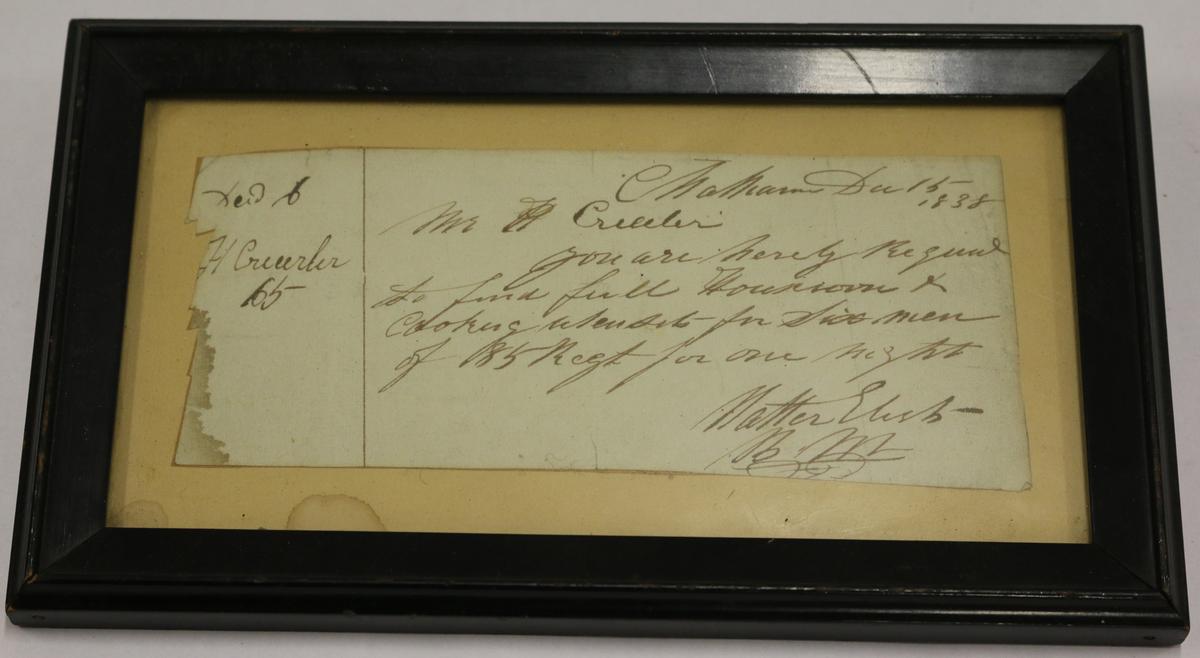 H Creeerler
65
Chatham Dec 15
1838
Mr H Creeler
you are hereby Requird
to find full &
cooking utensils for Six men
of 85 Regt for one night
Walter Eliot
B M